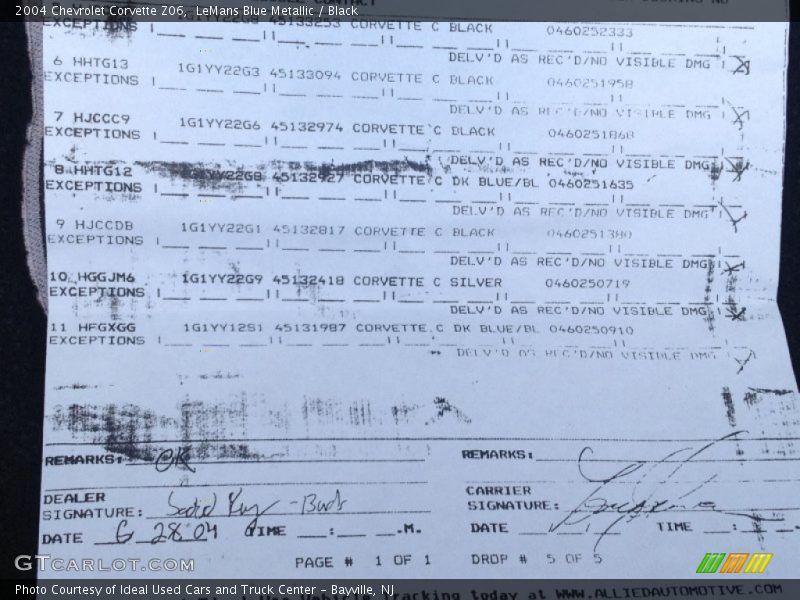 2004 Chevrolet Corvette Z06, LeMans Blue Metallic / Black
EXCEPTIONS 45133253 CORVETTE C BLACK 0460252333
DELV'D AS REC'D/NO VISIBLE DMG
6 HHTG13 1G1YY22G3 45133094 CORVETTE C BLACK 0460251958
EXCEPTIONS
DELV'D AS REC'D/NO VISIBLE DMG
7 HJCCC9 1G1YY22G6 45132974 CORVETTE C BLACK 0460251868
EXCEPTIONS
DELV'D AS REC'D/NO VISIBLE DMG
8 HHTG12 1G1YY22G8 45132927 CORVETTE C DK BLUE/BL 0460251635
EXCEPTIONS
DELV'D AS REC'D/NO VISIBLE DMG
9 HJCCDB 1G1YY22G1 45132817 CORVETTE C BLACK 0460251380
EXCEPTIONS
DELV'D AS REC'D/NO VISIBLE DMG
10 HGGJM6 1G1YY22G9 45132418 CORVETTE C SILVER 0460250719
EXCEPTIONS
DELV'D AS REC'D/NO VISIBLE DMG
11 HFGXGG 1G1YY12S1 45131987 CORVETTE C DK BLUE/BL 0460250910
EXCEPTIONS
DELV'D AS REC'D/NO VISIBLE DMG
REMARKS: OK
REMARKS:
DEALER
SIGNATURE:
CARRIER
SIGNATURE:
DATE 6 28 04 TIME __:__ __.M.
DATE TIME
PAGE # 1 OF 1 DROP # 5 OF 5
GTCARLOT.COM
Tracking today at WWW.ALLIEDAUTOMOTIVE.COM
Photo Courtesy of Ideal Used Cars and Truck Center – Bayville, NJ